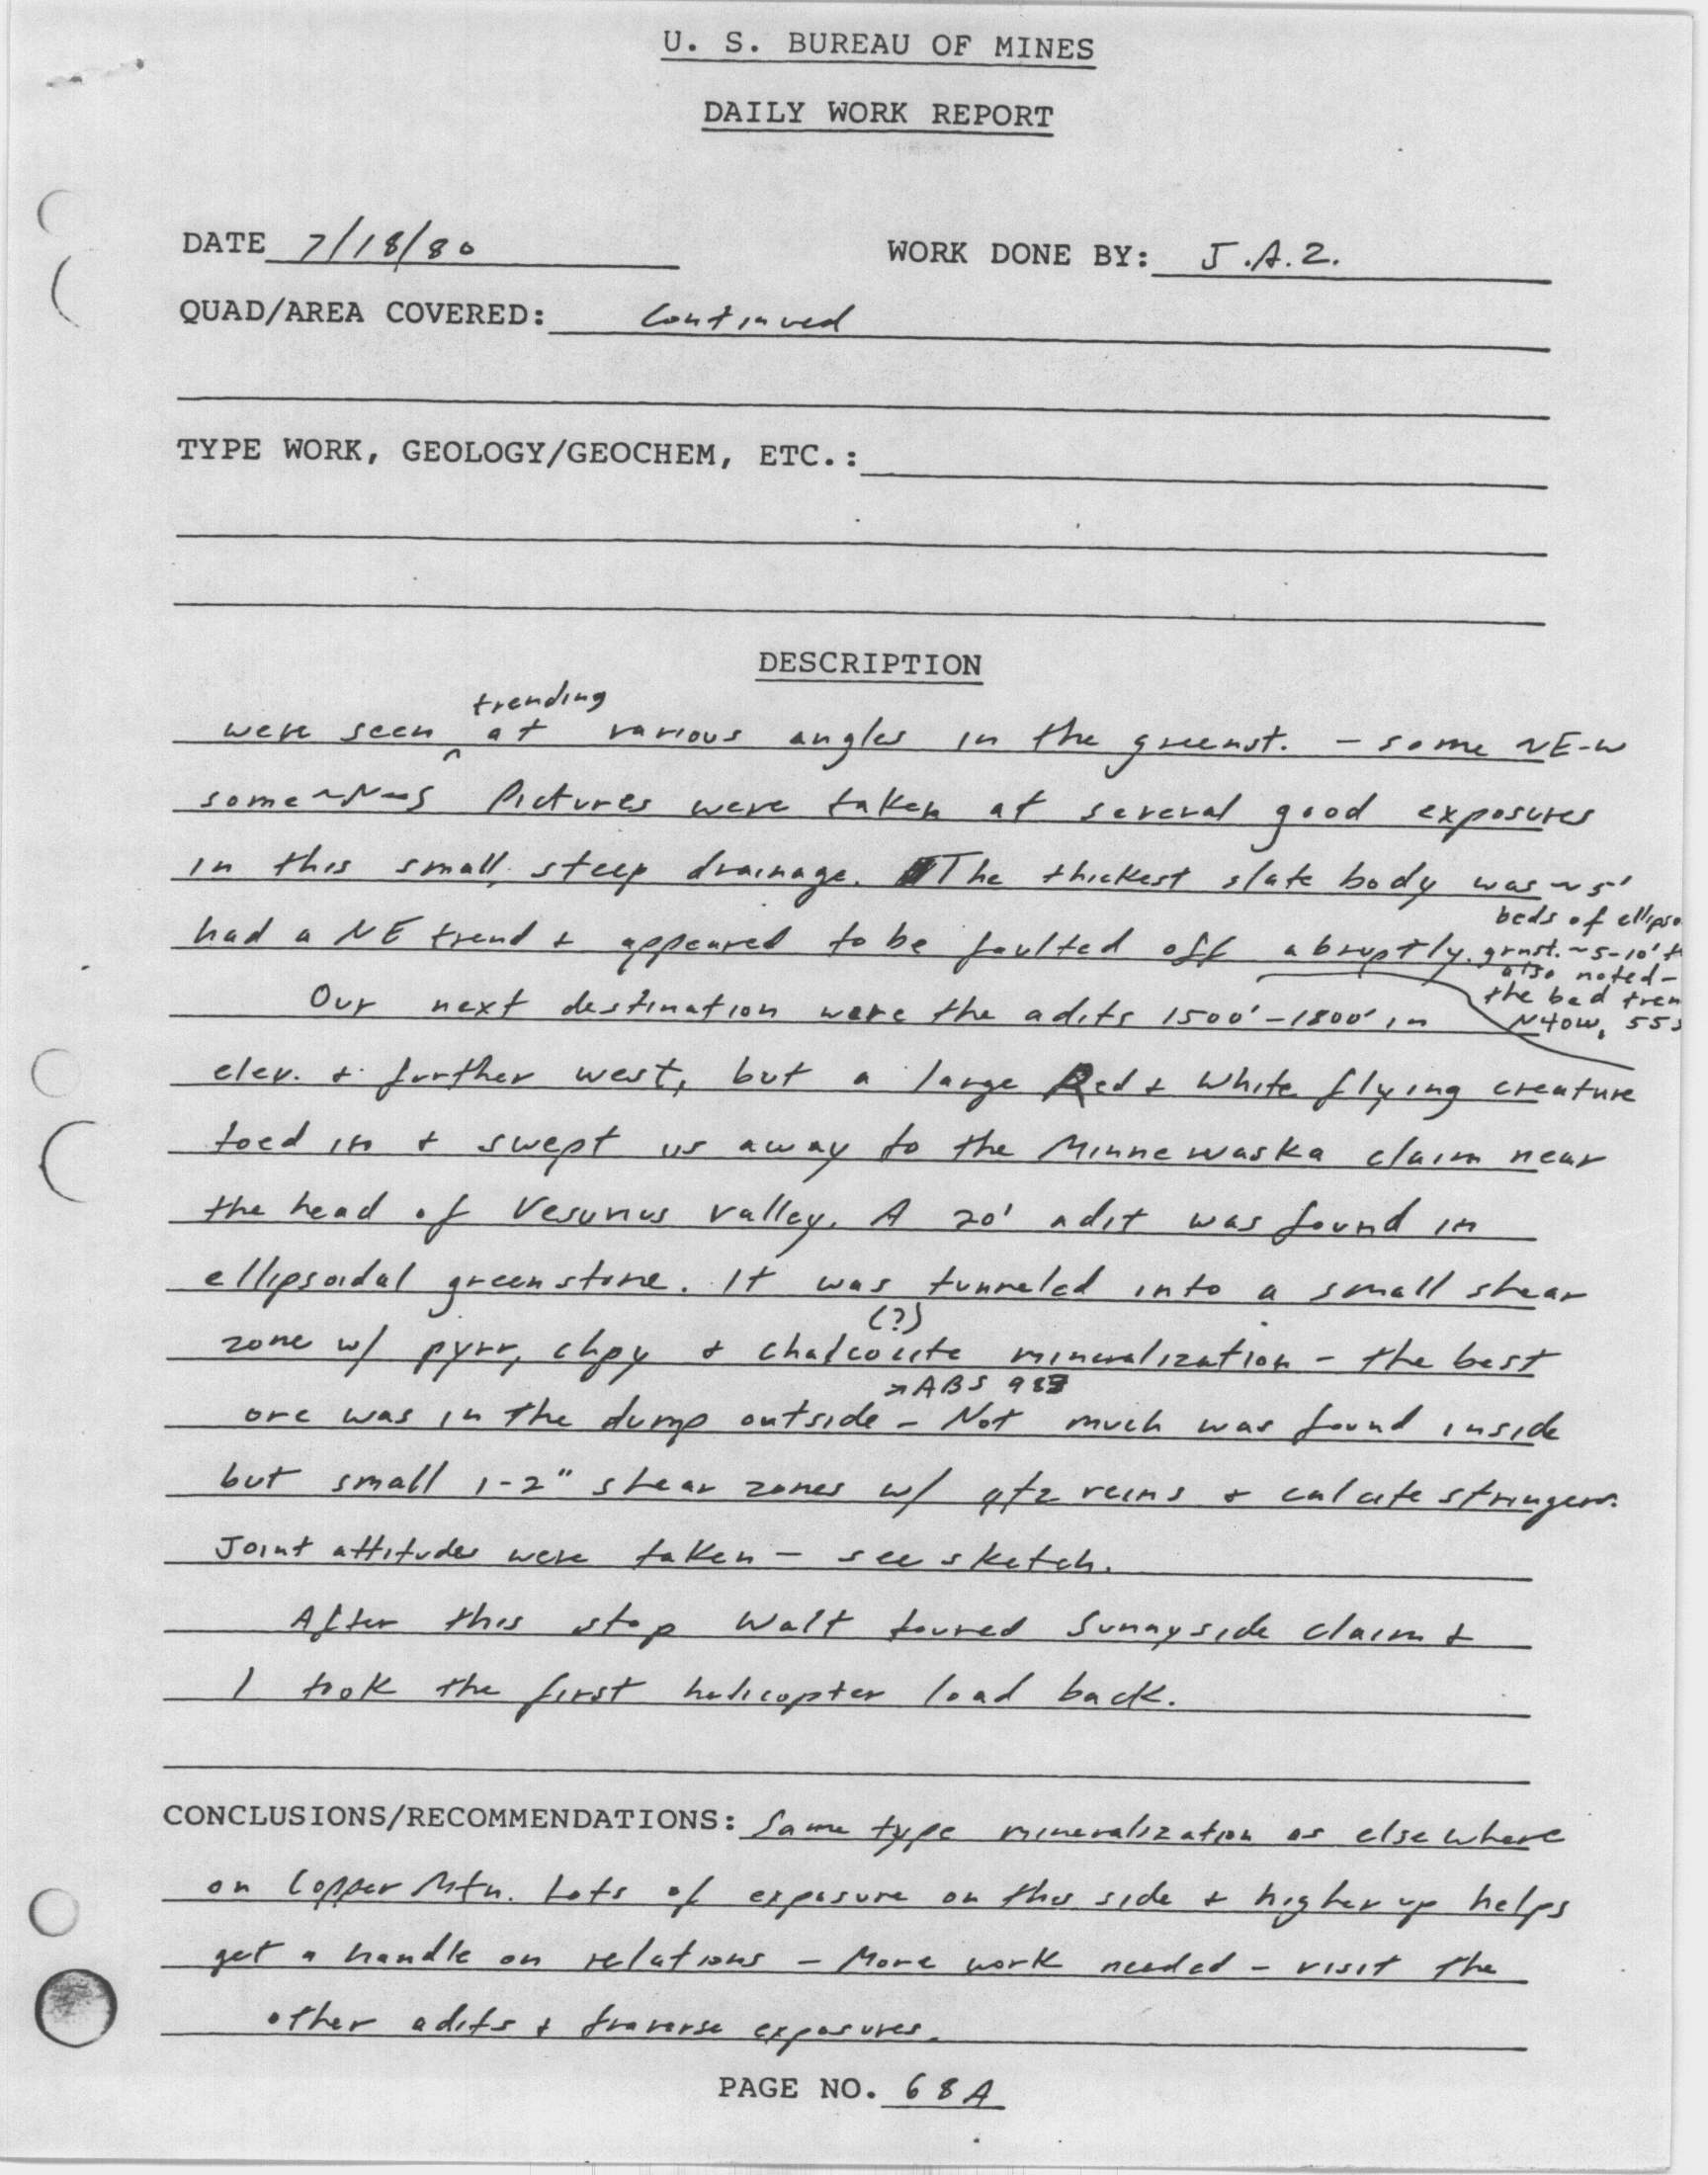 U. S. BUREAU OF MINES
DAILY WORK REPORT
DATE 7/18/80 WORK DONE BY: J.A.Z.
QUAD/AREA COVERED: Continued
TYPE WORK, GEOLOGY/GEOCHEM, ETC.:
DESCRIPTION
trending
were seen ^ at various angles in the greenst. - some ~E-W
some ~N-S Pictures were taken at several good exposures
in this small, steep drainage. The thickest slate body was ~5'
had a NE trend & appeared to be faulted off abruptly.
beds of ellipso
grnst. ~5-10' t
also noted-
the bed tren
N40W, 55S
Our next destination were the adits 1500'-1800' in
elev. & further west, but a large Red & White flying creature
toed in & swept us away to the Minnewaska claim near
the head of Vesuvius Valley. A 20' adit was found in
ellipsoidal greenstone. It was tunneled into a small shear
(?)
zone w/ pyrr, chpy & chalcocite mineralization - the best
→ABS
ore was in the dump outside - Not much was found inside
but small 1-2" shear zones w/ qtz veins & calcite stringers.
Joint attitudes were taken - see sketch.
After this stop Walt toured Sunnyside claim &
I took the first helicopter load back.
CONCLUSIONS/RECOMMENDATIONS: Same type mineralization as elsewhere
on Copper Mtn. Lots of exposure on this side & higher up helps
get a handle on relations - More work needed - visit the
other adits & traverse exposures.
PAGE NO. 68A